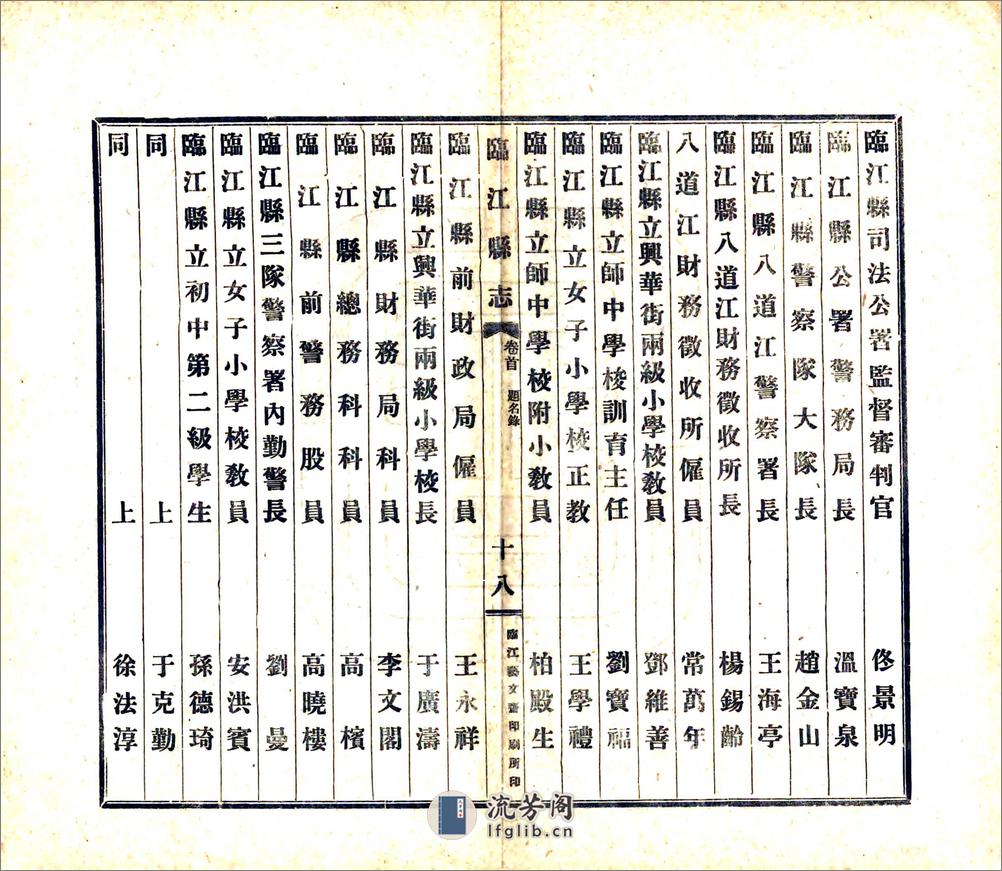 臨江縣司法公署監督審判官 佟景明
臨江縣公署警務局長 溫寶泉
臨江縣警察隊大隊長 趙金山
臨江縣八道江警察署長 王海亭
臨江縣八道江財務徵收所長 楊錫齡
八道江財務徵收所僱員 常萬年
臨江縣立興華街兩級小學校教員 鄧維善
臨江縣立師中學校訓育主任 劉寶福
臨江縣立女子小學校正教 王學禮
臨江縣立師中學校附小教員 柏殿生
臨江縣志 卷首 題名錄 十八 臨江藝文齋印刷所印
臨江縣前財政局僱員 王永祥
臨江縣立興華街兩級小學校長 于廣濤
臨江縣財務局科員 李文閣
臨江縣總務科科員 高檳
臨江縣前警務股員 高曉樓
臨江縣三隊警察署內勤警長 劉曼
臨江縣立女子小學校教員 安洪賓
臨江縣立初中第二級學生 孫德琦
同上 于克勤
同上 徐法淳
流芳阁
lfglib.cn